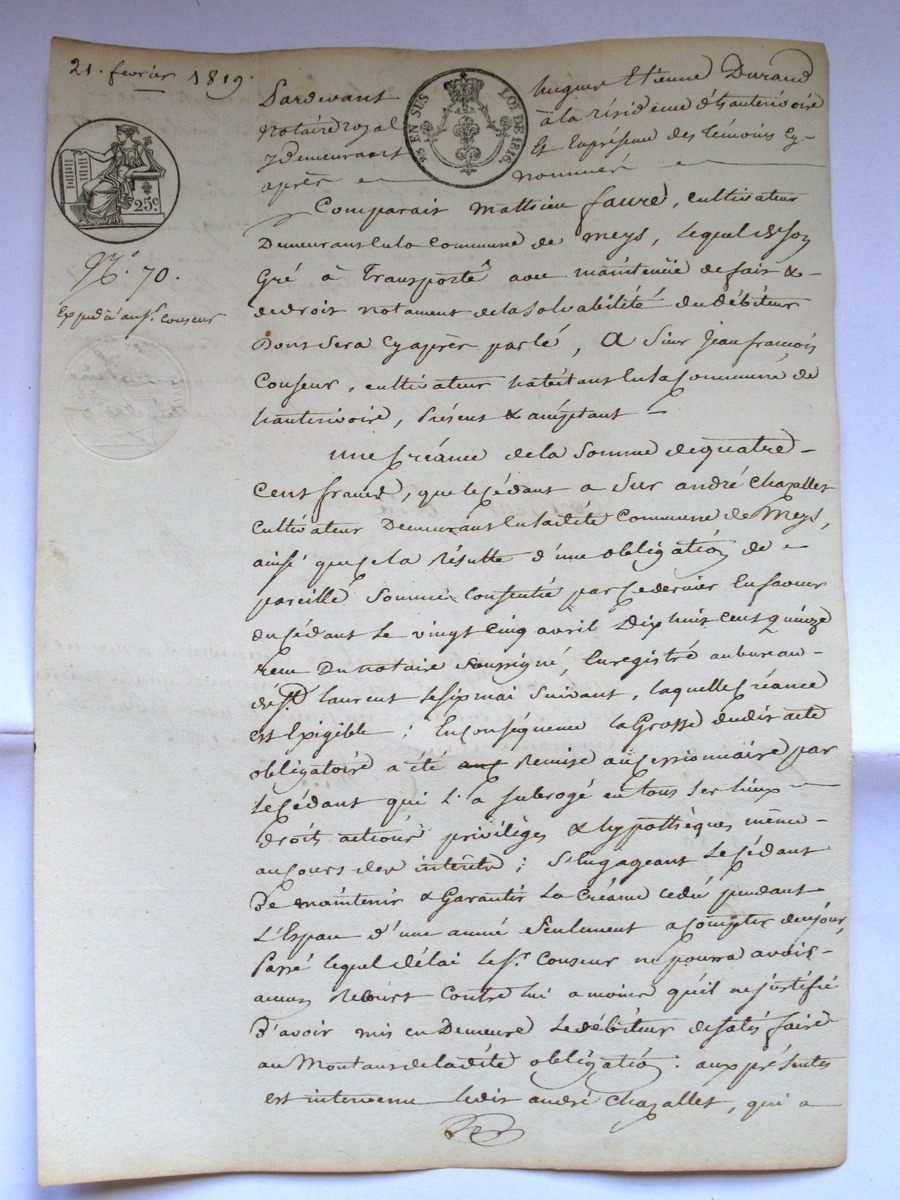 21. fevrier 1819.
Pardevant hugues Etienne Durand
notaire royal à la résidence d'hauterivoire
y demeurant Et En présence des témoins cy-
après nommés
25 EN SUS LOI DE 1816.
25c.
No. 70.
Expedié au sr. couseur
Comparait mathieu faure, cultivateur
Demeurant en la commune de meys, lequel de son
Gré à transporté avec maintenüe de fait &
de droit notament de la solvabilité du débiteur
Dont sera cy après parlé, A sieur jean françois
Couseur, cultivateur habitant en la Commune de
hauterivoire, présent & acceptant
une créance de la somme de quatre
cent francs, que le cédant a sur andré Chazallet
cultivateur Demeurant en la dite Commune de Meys,
ainsi que cela résulte d'une obligation de
pareille somme consentie par ce dernier en faveur
du cédant le vingt cinq avril Dix huit cent quinze
recue Du notaire soussigné, Enregistré au bureau
de St. laurent le six mai suivant, laquelle créance
est Exigible ; En conséquence la Grosse dudit acte
obligatoire a été remise au cessionnaire par
le cédant qui l'a subrogé en tous ses lieux
droits actions privilèges & hypothèques même
au cours des intérêts ; S'Engageant le cédant
De maintenir & Garantir la Créance cedée pendant
L'Espace d'une année seulement a compter de ce jour,
Passé lequel délai le sr. Couseur ne pourra avoir
aucun recours contre lui a moins qu'il ne justifie
D'avoir mis en Demeure le débiteur de satisfaire
au Montant de la dite obligation. aux présentes
est intervenu ledit andré Chazallet, qui a